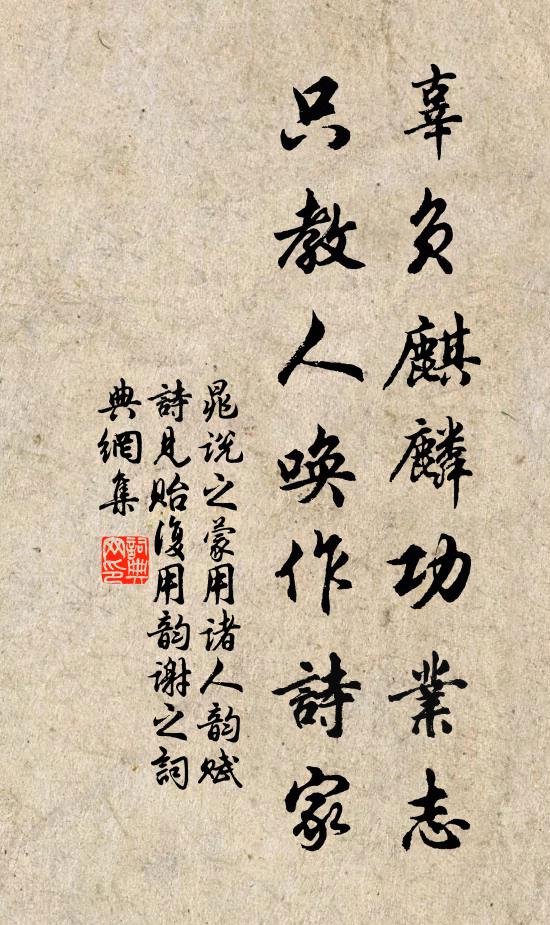 辜負麒麟功業志
只教人喚作詩家
晁说之蒙用诸人韵赋
詩見貽復用韵谢之詞
典網集
詞典
网印